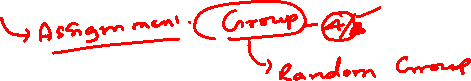 Assignment. Group - A/B
Random Group